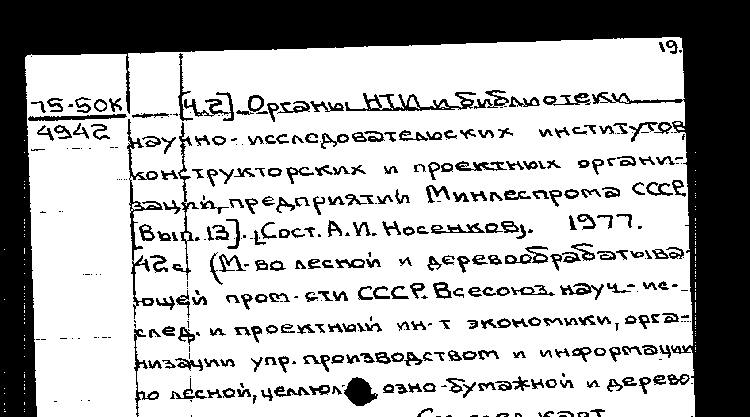 19.
75-50К
4942
[Ч.2] Органы НТИ и библиотеки
научно-исследовательских институтов
конструкторских и проектных органи-
заций, предприятий Минлеспрома СССР.
[Вып. 13]. [Сост. А.И. Носенков]. 1977.
42 с. (М-во лесной и деревообрабатыва-
ющей пром-сти СССР. Всесоюз. науч.-ис-
след. и проектный ин-т экономики, орга-
низации упр. производством и информации
по лесной, целлюлозно-бумажной и дерево-